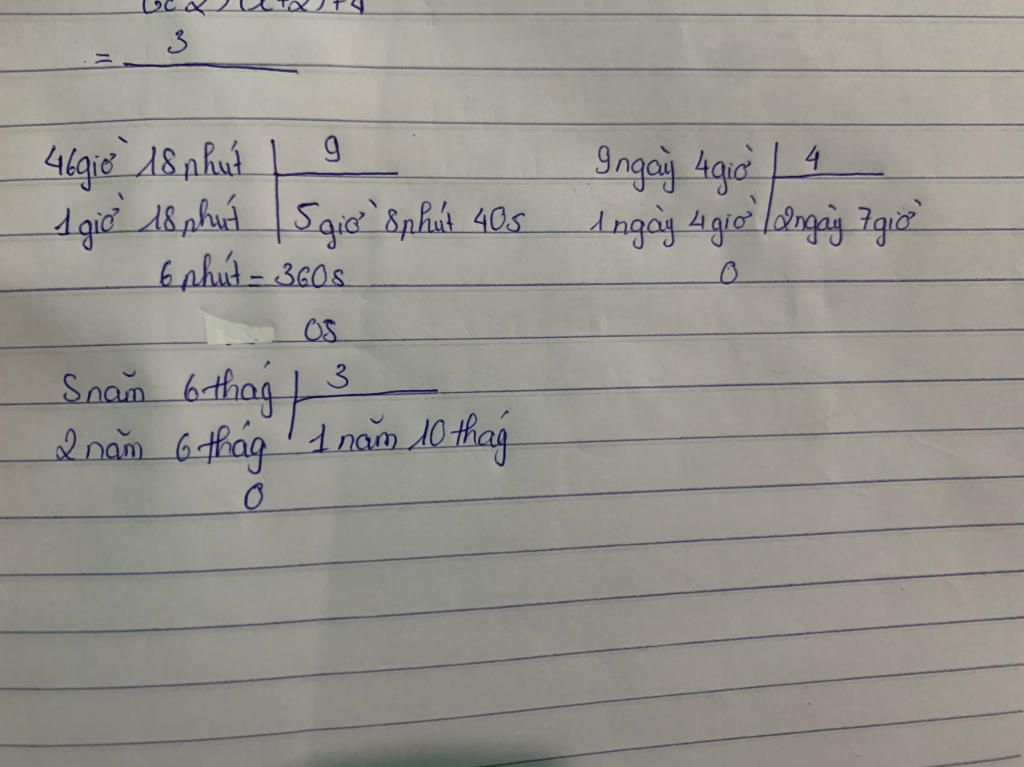 = 3
46giờ 18phút 9
1giờ 18phút 5giờ 8phút 40s
6phút = 360s
0s
9ngày 4giờ 4
1ngày 4giờ 2ngày 7giờ
0
5năm 6thág 3
2năm 6thág 1năm 10thág
0